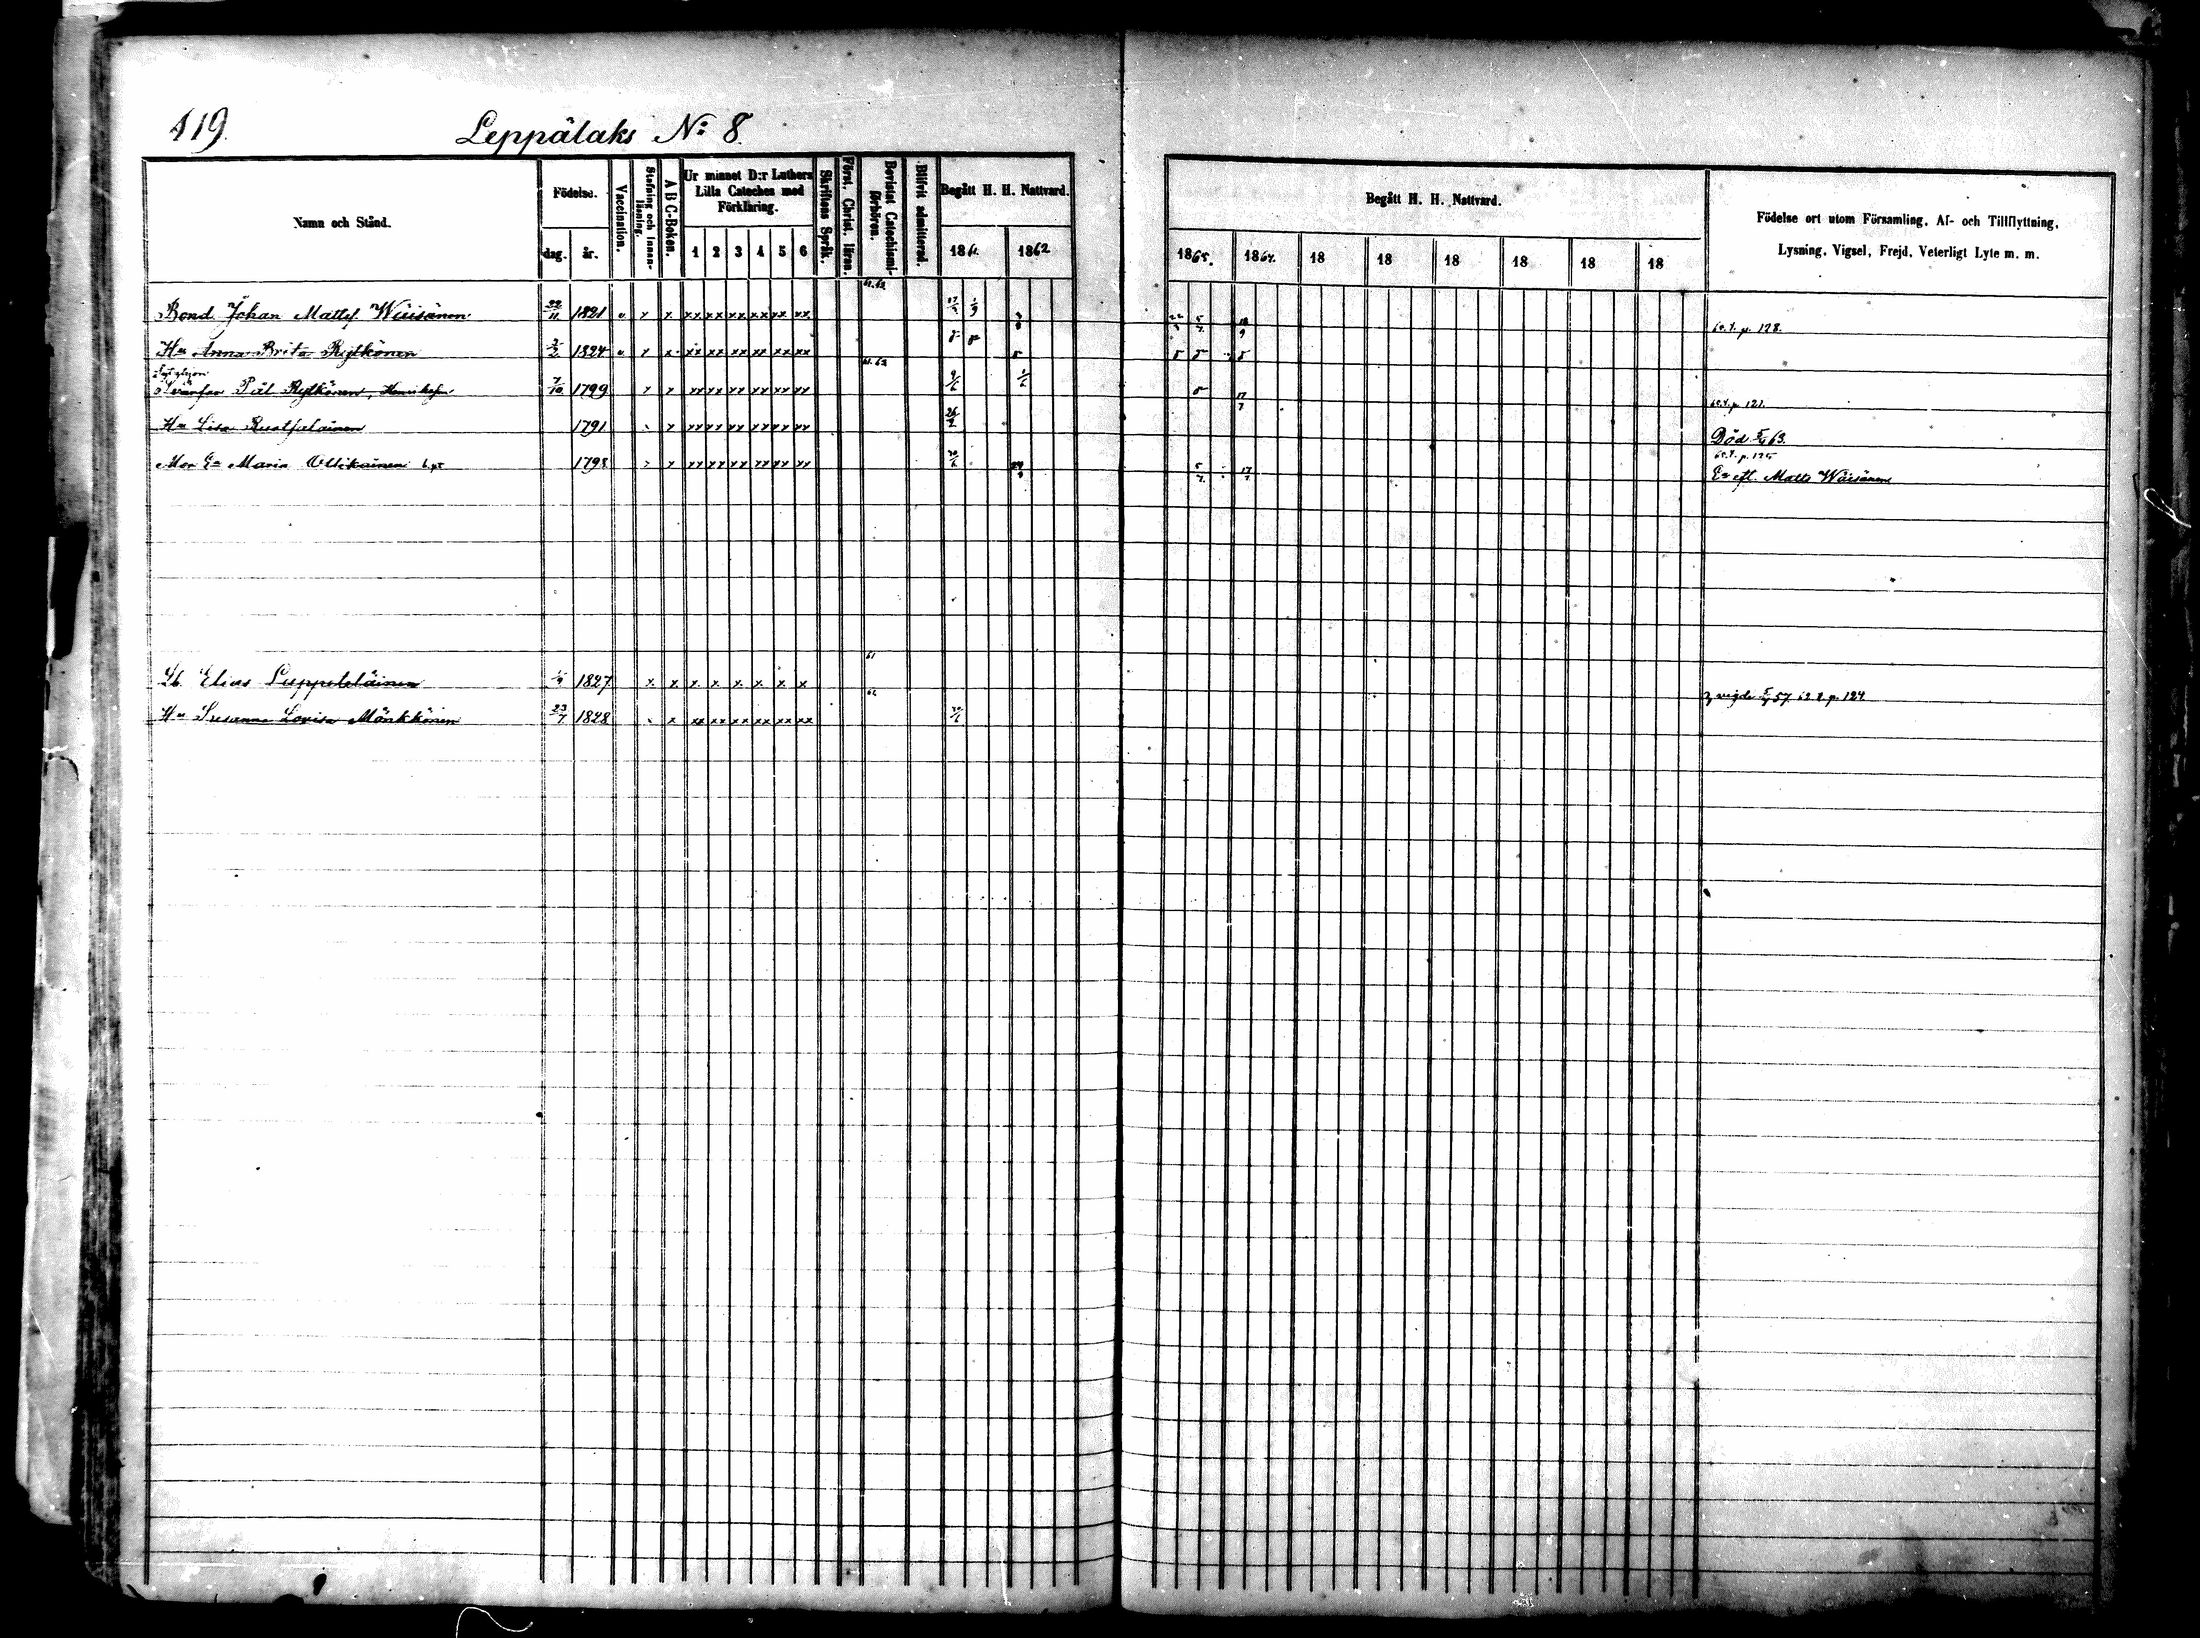 119.
Leppälaks No 8.
Namn och Stånd.
Födelse.
dag. år.
Vaccination.
Stafning och Innanläsning.
A B C-Boken.
Ur minnet D:r Luthers Lilla Cateches med Förklaring.
1 2 3 4 5 6
Skriftens Språk.
Först. Christ. läran.
Bevistat Catechismiförhören.
Blifvit admitterad.
Begått H. H. Nattvard.
1861. 1862
Begått H. H. Nattvard.
1863. 1864. 18 18 18 18 18 18
Födelse ort utom Församling, Af- och Tillflyttning,
Lysning, Vigsel, Frejd, Veterligt Lyte m. m.
61.62
Bond Johan Mattsf Wäisänen 22/11 1821 v x x xx xx xx xx xx xx 60.4. p. 128.
Hu Anna Brita Rytkönen 2/2 1824 v x x xx xx xx xx xx xx
61.62
Svärfar Pål Rytkönen, Henriksson 7/10 1799 x x xx xx xx xx xx xx 9/6 1/6 60.4. p. 121.
Hu Lisa 1791 x x xx xx xx xx xx xx Död 63.
60.4. p. 125
Mor Ea Maria Ollikainen 1798 x x xx xx xx xx xx xx Ea eft. Matts Wäisänen
61
Elias Leppäläinen 1827 x x x x x x x x
62
vigde 57. 62.2. p. 124
Hu Susanna Lovisa Mönkkönen 23/7 1828 x x xx xx xx xx xx xx